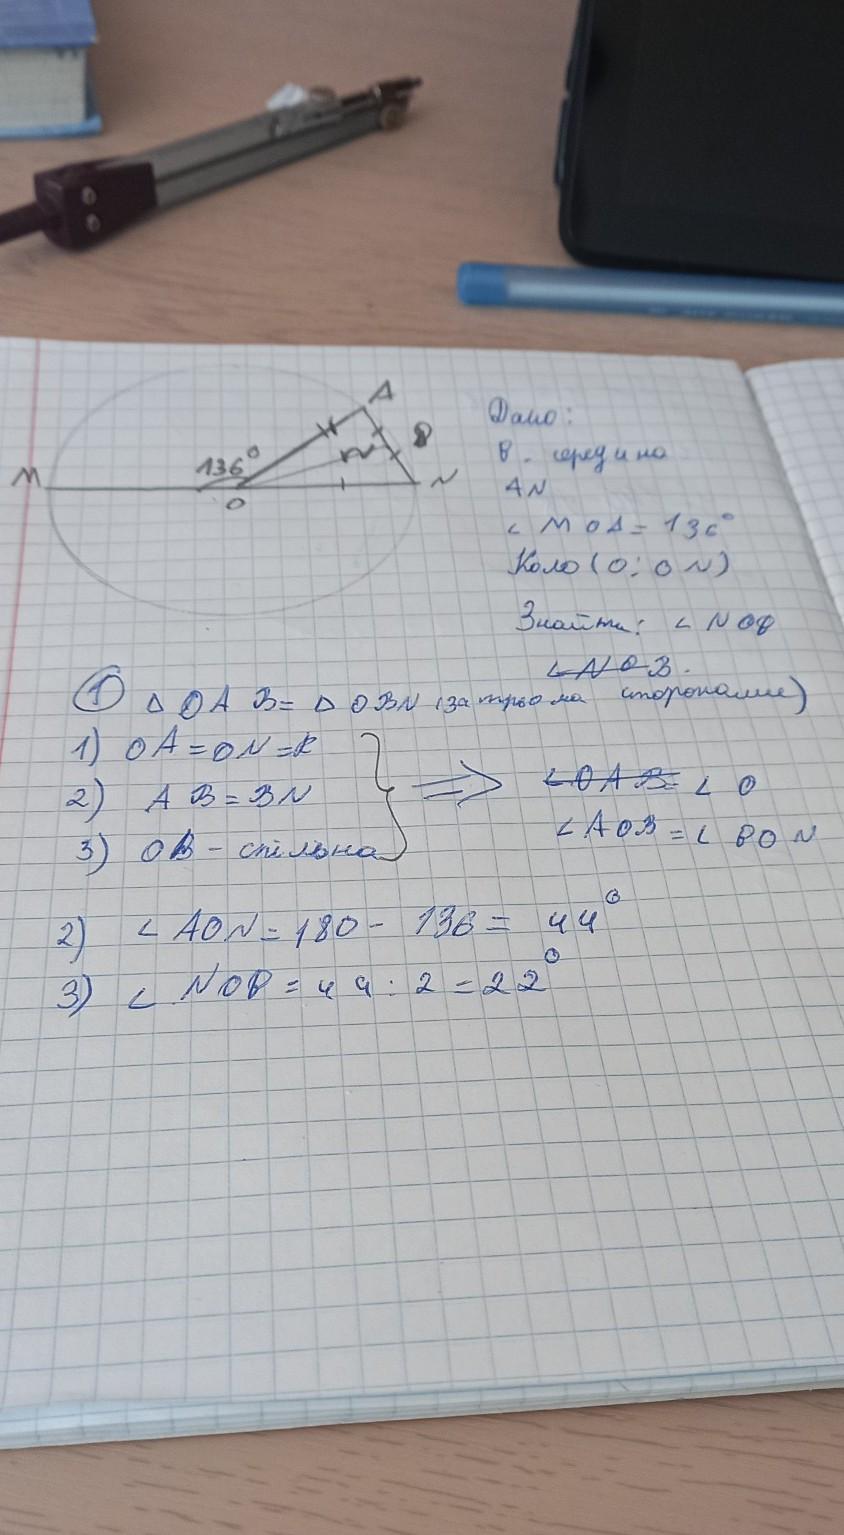 A
B
136°
M
N
O
Дано:
B - середина
AN
∠ MOA = 136°
Коло (O; ON)
Знайти: ∠ NOB
∠ NOB.
① △ OAB = △ OBN (за трьома сторонами)
1) OA = ON = R
2) AB = BN
3) OB - спільна
⇒ ∠OAB = ∠ O
∠AOB = ∠ BON
2) ∠ AON = 180 - 136 = 44°
3) ∠ NOB = 44 : 2 = 22°